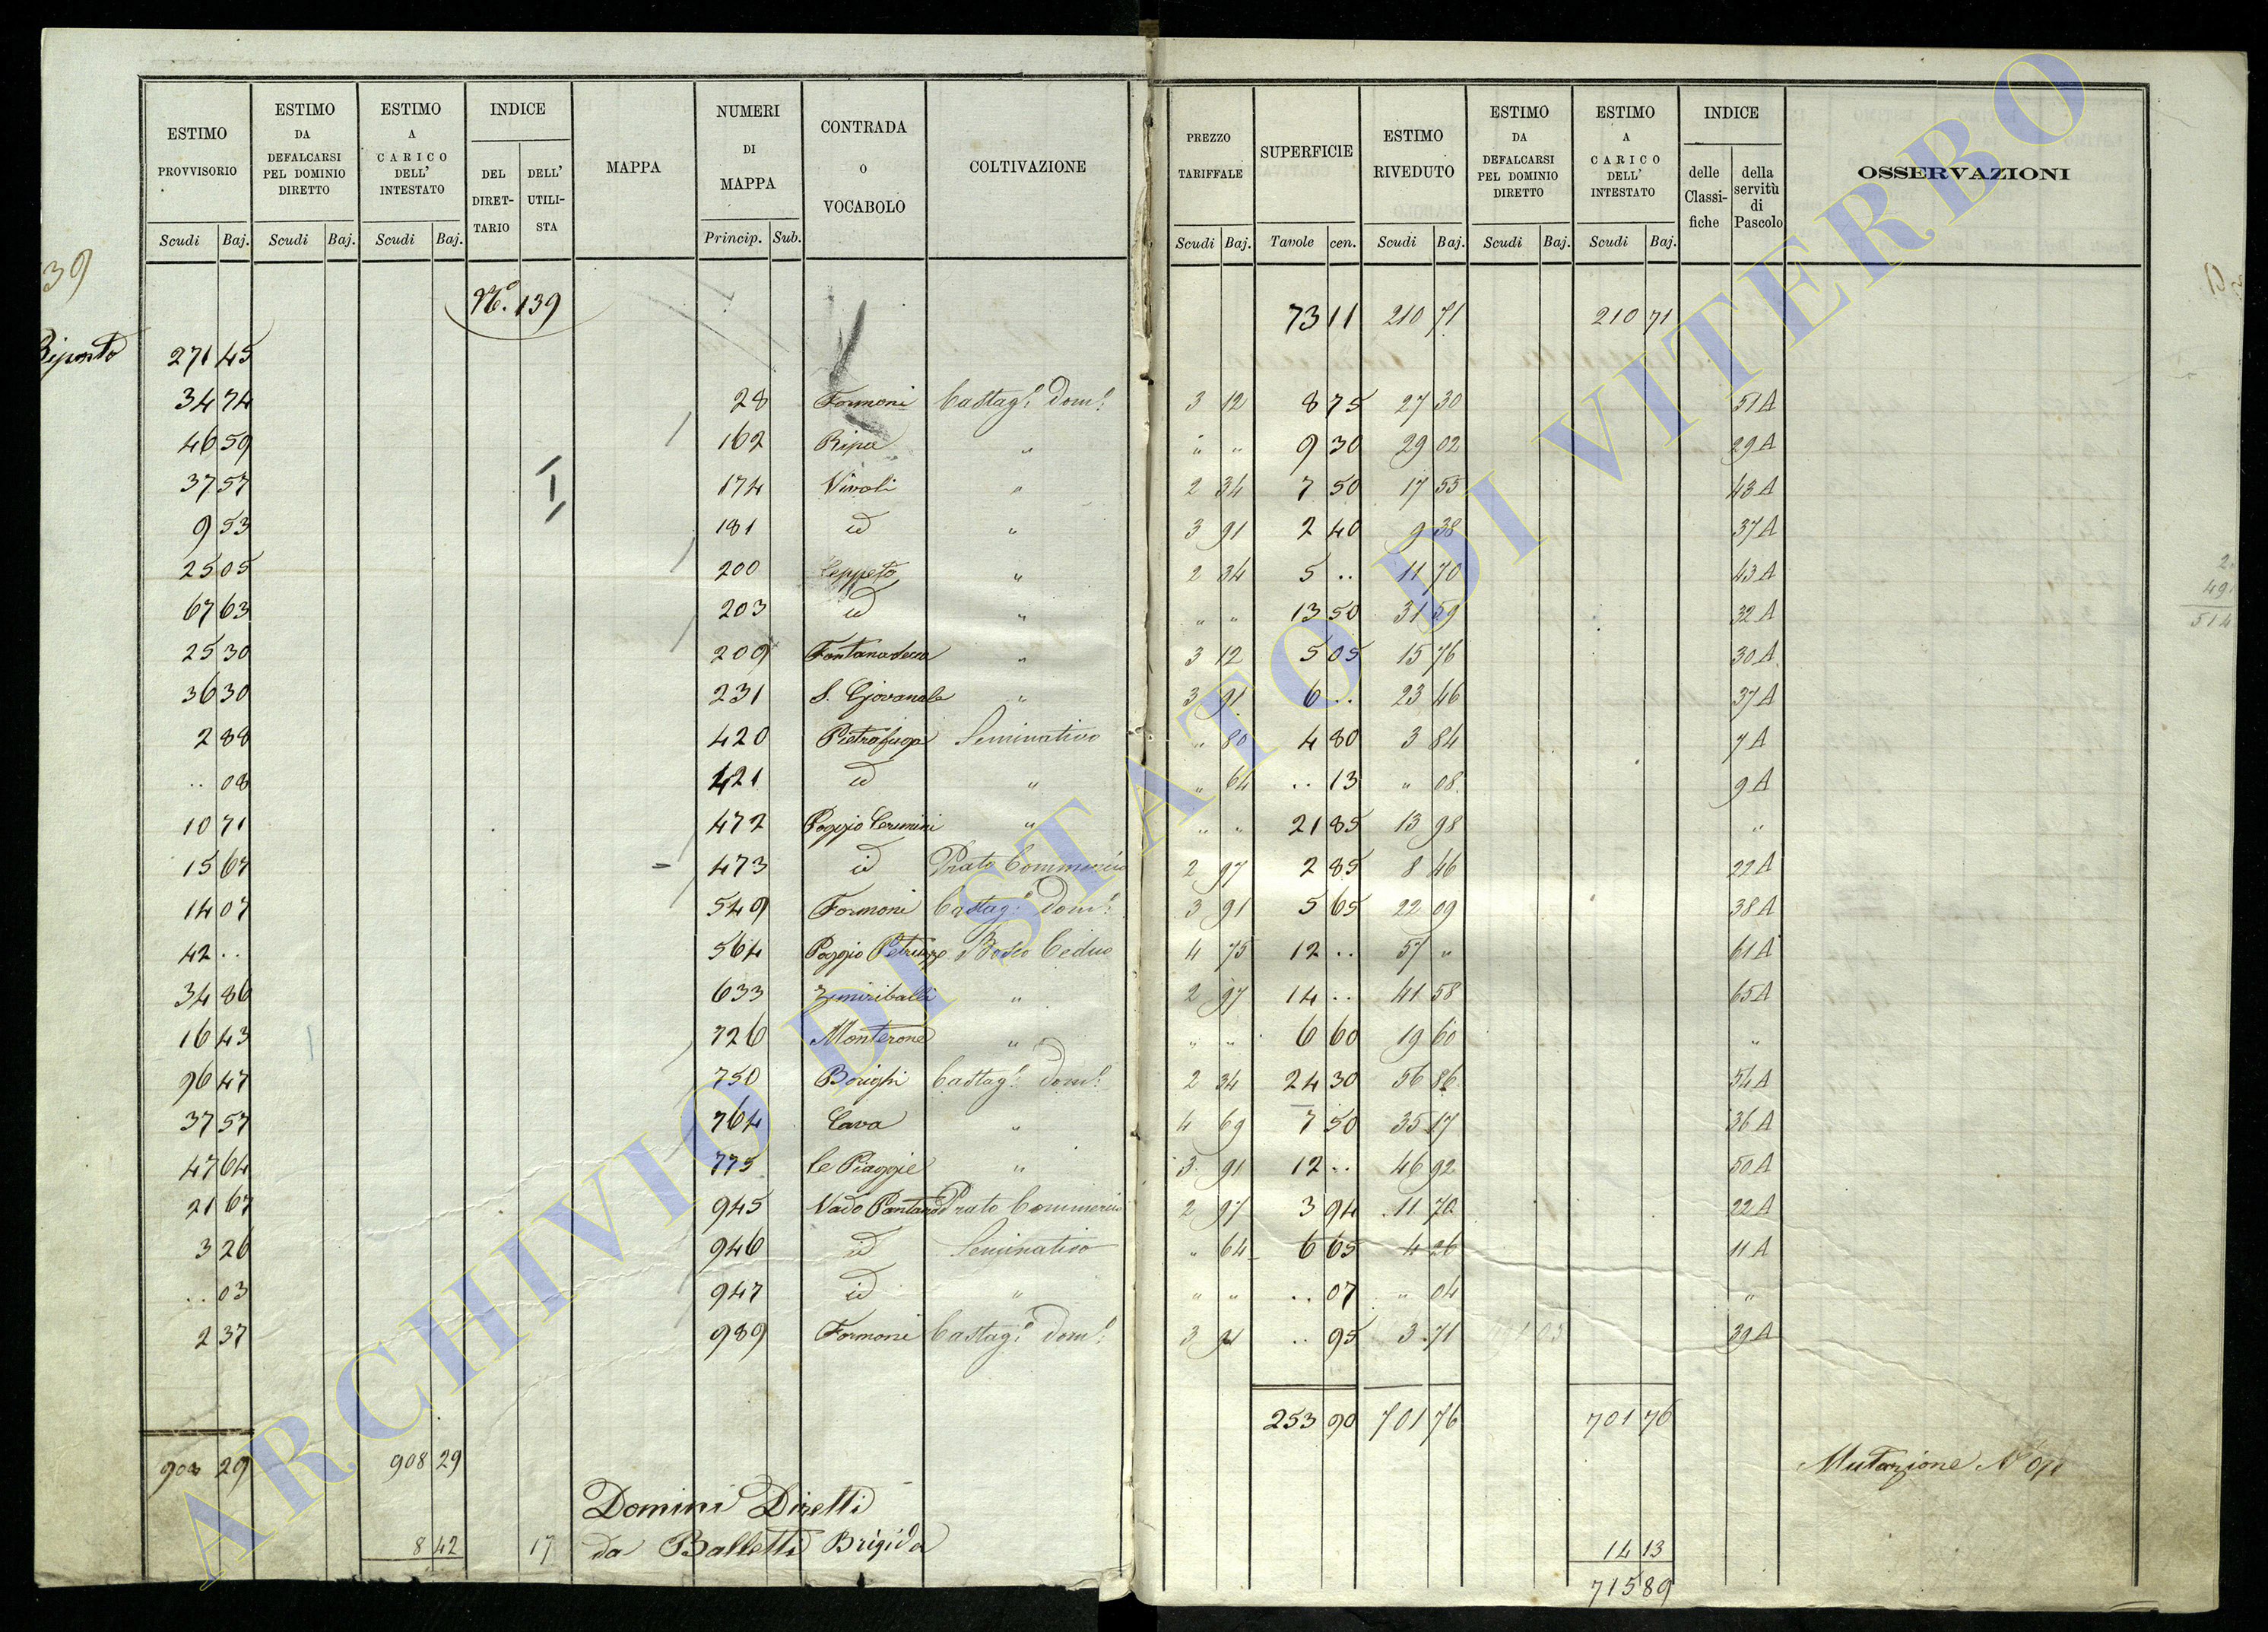 ESTIMO PROVVISORIO | ESTIMO DA DEFALCARSI PEL DOMINIO DIRETTO | ESTIMO A CARICO DELL' INTESTATO | INDICE | MAPPA | NUMERI DI MAPPA | CONTRADA o VOCABOLO | COLTIVAZIONE | PREZZO TARIFFALE | SUPERFICIE | ESTIMO RIVEDUTO | ESTIMO DA DEFALCARSI PEL DOMINIO DIRETTO | ESTIMO A CARICO DELL' INTESTATO | INDICE | OSSERVAZIONI
DEL DIRETTARIO | DELL' UTILISTA | delle Classifiche | della servitù di Pascolo
Scudi Baj. | Scudi Baj. | Scudi Baj. | Princip. Sub. | Scudi Baj. | Tavole cen. | Scudi Baj. | Scudi Baj. | Scudi Baj.
39
Nº. 139 | 73 11 | 210 71 | 210 71
Riporto 271 45
34 74 | 28 | Formoni | Castag. Dom. | 3 12 | 8 75 | 27 30 | 51 A
46 59 | 162 | Ripa | " | " " | 9 30 | 29 02 | 29 A
37 57 | 174 | Vivoli | " | 2 34 | 7 50 | 17 55 | 43 A
9 53 | 181 | id | " | 3 91 | 2 40 | 9 38 | 37 A
25 05 | 200 | Ceppeto | " | 2 34 | 5 .. | 11 70 | 43 A
67 63 | 203 | id | " | " " | 13 50 | 31 59 | 32 A
25 30 | 209 | Fontanasecca | " | 3 12 | 5 05 | 15 76 | 30 A
36 30 | 231 | S. Giovanale | " | 3 91 | 6 .. | 23 46 | 37 A
2 88 | 420 | Pietrafuga | Seminativo | " 80 | 4 80 | 3 84 | 7 A
.. 08 | 421 | id | " | " 64 | .. 13 | " 08 | 9 A
10 71 | 472 | Poggio Cerimini | " | " " | 21 85 | 13 98 | "
15 67 | 473 | id | Prato Commercio | 2 97 | 2 85 | 8 46 | 22 A
14 07 | 549 | Formoni | Castag. Dom. | 3 91 | 5 65 | 22 09 | 38 A
42 .. | 564 | Poggio | Bosco Ceduo | 4 75 | 12 .. | 57 " | 61 A
34 86 | 633 | " | 2 97 | 14 .. | 41 58 | 65 A
16 43 | 726 | Monterone | " | " " | 6 60 | 19 60 | "
96 47 | 750 | Borighi | Castag. Dom. | 2 34 | 24 30 | 56 86 | 54 A
37 57 | 764 | Cava | " | 4 69 | 7 50 | 35 17 | 36 A
47 64 | 775 | le Piaggie | " | 3 91 | 12 .. | 46 92 | 50 A
21 67 | 945 | Vado Pantano | Prato Commercio | 2 97 | 3 94 | 11 70 | 22 A
3 26 | 946 | id | Seminativo | " 64 | 6 65 | 4 26 | 11 A
.. 03 | 947 | id | " | " " | .. 07 | " 04 | "
2 37 | 989 | Formoni | Castag. Dom. | 3 91 | .. 95 | 3 71 | 39 A
253 90 | 701 76 | 701 76
908 29 | 908 29 | Mutazione Nº
Domini Diretti
8 42 | 17 | da Balletti Brigida | 14 13
715 89
ARCHIVIO DI STATO DI VITERBO